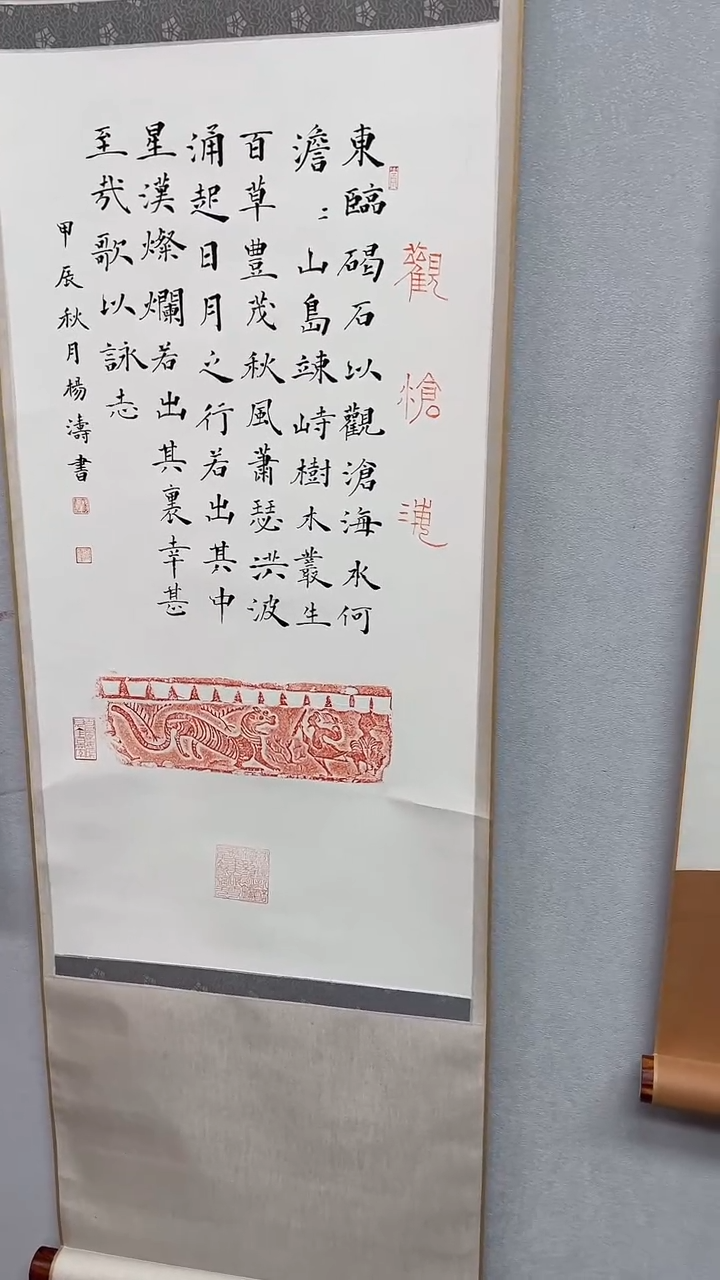 觀滄海
東臨碣石以觀滄海水何
澹〻山島竦峙樹木叢生
百草豐茂秋風蕭瑟洪波
涌起日月之行若出其中
星漢燦爛若出其裏幸甚
至哉歌以詠志
甲辰秋月楊濤書